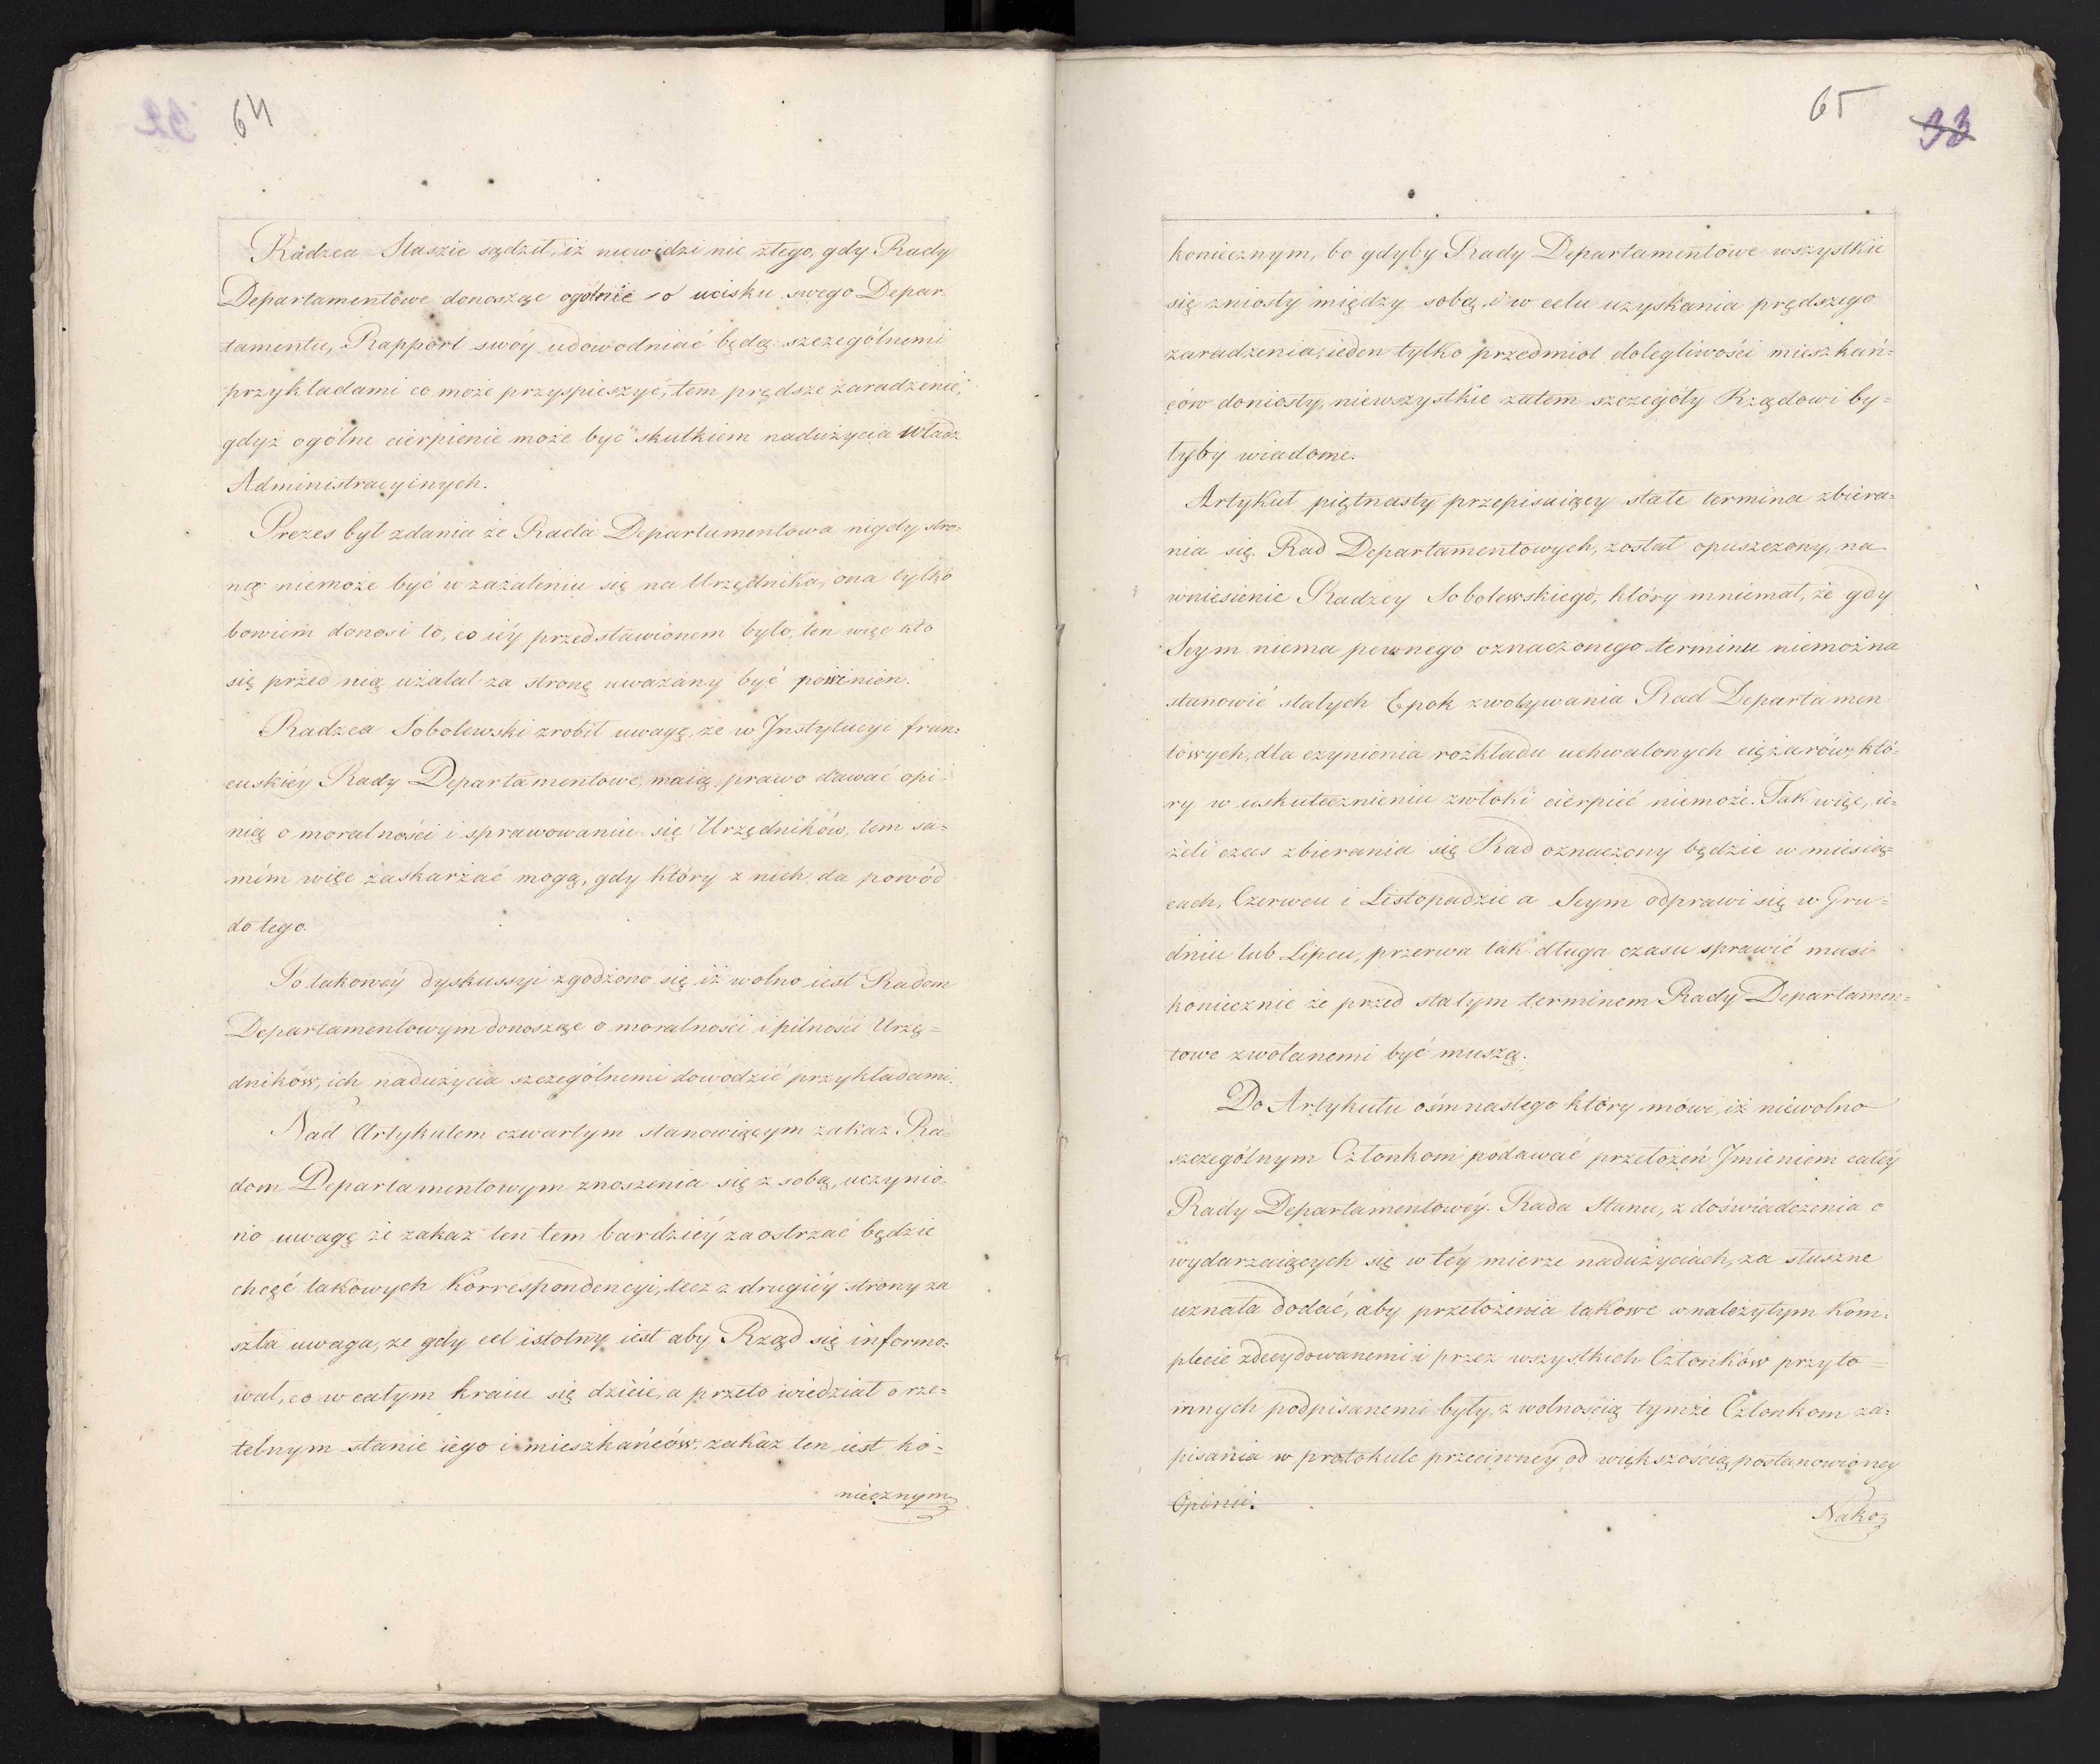 64
Radzca Staszic sądził, iż niewidzi nic złego, gdy Rady
Departamentowe donosząc ogólnie o ucisku swego Depar-
tamentu, Rapport swóy udowodniać będą szczególnemi
przykładami co może przyspieszyć, tem prędsze zaradzenie,
gdyż ogólne cierpienie może być skutkiem nadużycia Władz
Administracyinych.
Prezes był zdania że Rada Departamentowa nigdy stro-
ną niemoże być w zażaleniu się na Urzędnika, ona tylko
bowiem donosi to, co iéy przedstawionem było, ten więc kto
się przed nią użalał za stronę uważany być powinien.
Radzca Sobolewski zrobił uwagę, że w Jnstytucyi fran-
cuskiéy Rady Departamentowe, maią prawo dawać opi-
nią o moralności i sprawowaniu się Urzędników, tem sa=
mém więc zaskarżać mogą, gdy który z nich da powód
do tego.
Po takowéy dyskussyi zgodzono się iż wolno iest Radom
Departamentowym donosząc o moralności i pilności Urzę=
dników, ich nadużycia szczególnemi dowodzić przykładami.
Nad Artykułem czwartym stanowiącym zakaz Ra-
dom Departamentowym znoszenia się z sobą, uczynio-
no uwagę że zakaz ten tem bardziéy zaostrzać będzie
chęć takowych Korrespondencyi, lecz z drugiéy strony za
szła uwaga, że gdy cel istotny iest aby Rząd się informo-
wał, co w całym kraiu się dzieie, a przeto wiedział o rze=
telnym stanie iego i mieszkańców, zakaz ten iest ko=
niecznym
65
33
koniecznym, bo gdyby Rady Departamentowe wszystkie
się zniosły między sobą i w celu uzyskania prędszego
zaradzenia, ieden tylko przedmiot dolegliwości mieszkań=
ców doniosły, niewszystkie zatem szczegóły Rządowi by=
łyby wiadome.
Artykuł piętnasty przepisuiący stałe termina zbiera=
nia się Rad Departamentowych, został opuszczony, na
wniesienie Radzcy Sobolewskiego, który mniemał, że gdy
Seym niema pewnego oznaczonego terminu niemożna
stanowić stałych Epok zwoływania Rad Departamen
towych, dla czynienia rozkładu uchwalonych ciężarów, któ-
ry w uskutecznieniu zwłoki cierpieć niemoże. Tak więc, ie-
żeli czas zbierania się Rad oznaczony będzie w miesią-
cach, Czerwcu i Listopadzie a Seym odprawi się w Gru=
dniu lub Lipcu, przerwa tak długa czasu sprawić musi
koniecznie że przed stałym terminem Rady Departamen=
towe zwołanemi być muszą.
Do Artykułu ośmnastego który mówi, iż niewolno
szczególnym Członkom podawać przełożeń Jmieniem całéy
Rady Departamentowéy. Rada Stanu, z doświadczenia o
wydarzaiących się w téy mierze nadużyciach, za słuszne
uznała dodać, aby przełożenia takowe w należytym Kom-
plecie zdecydowanemi i przez wszystkich Członków przyto=
mnych podpisanemi były, z wolnością tymże Członkom za-
pisania w protokule przeciwnéy od większością postanowioney
Opinii.
Nako